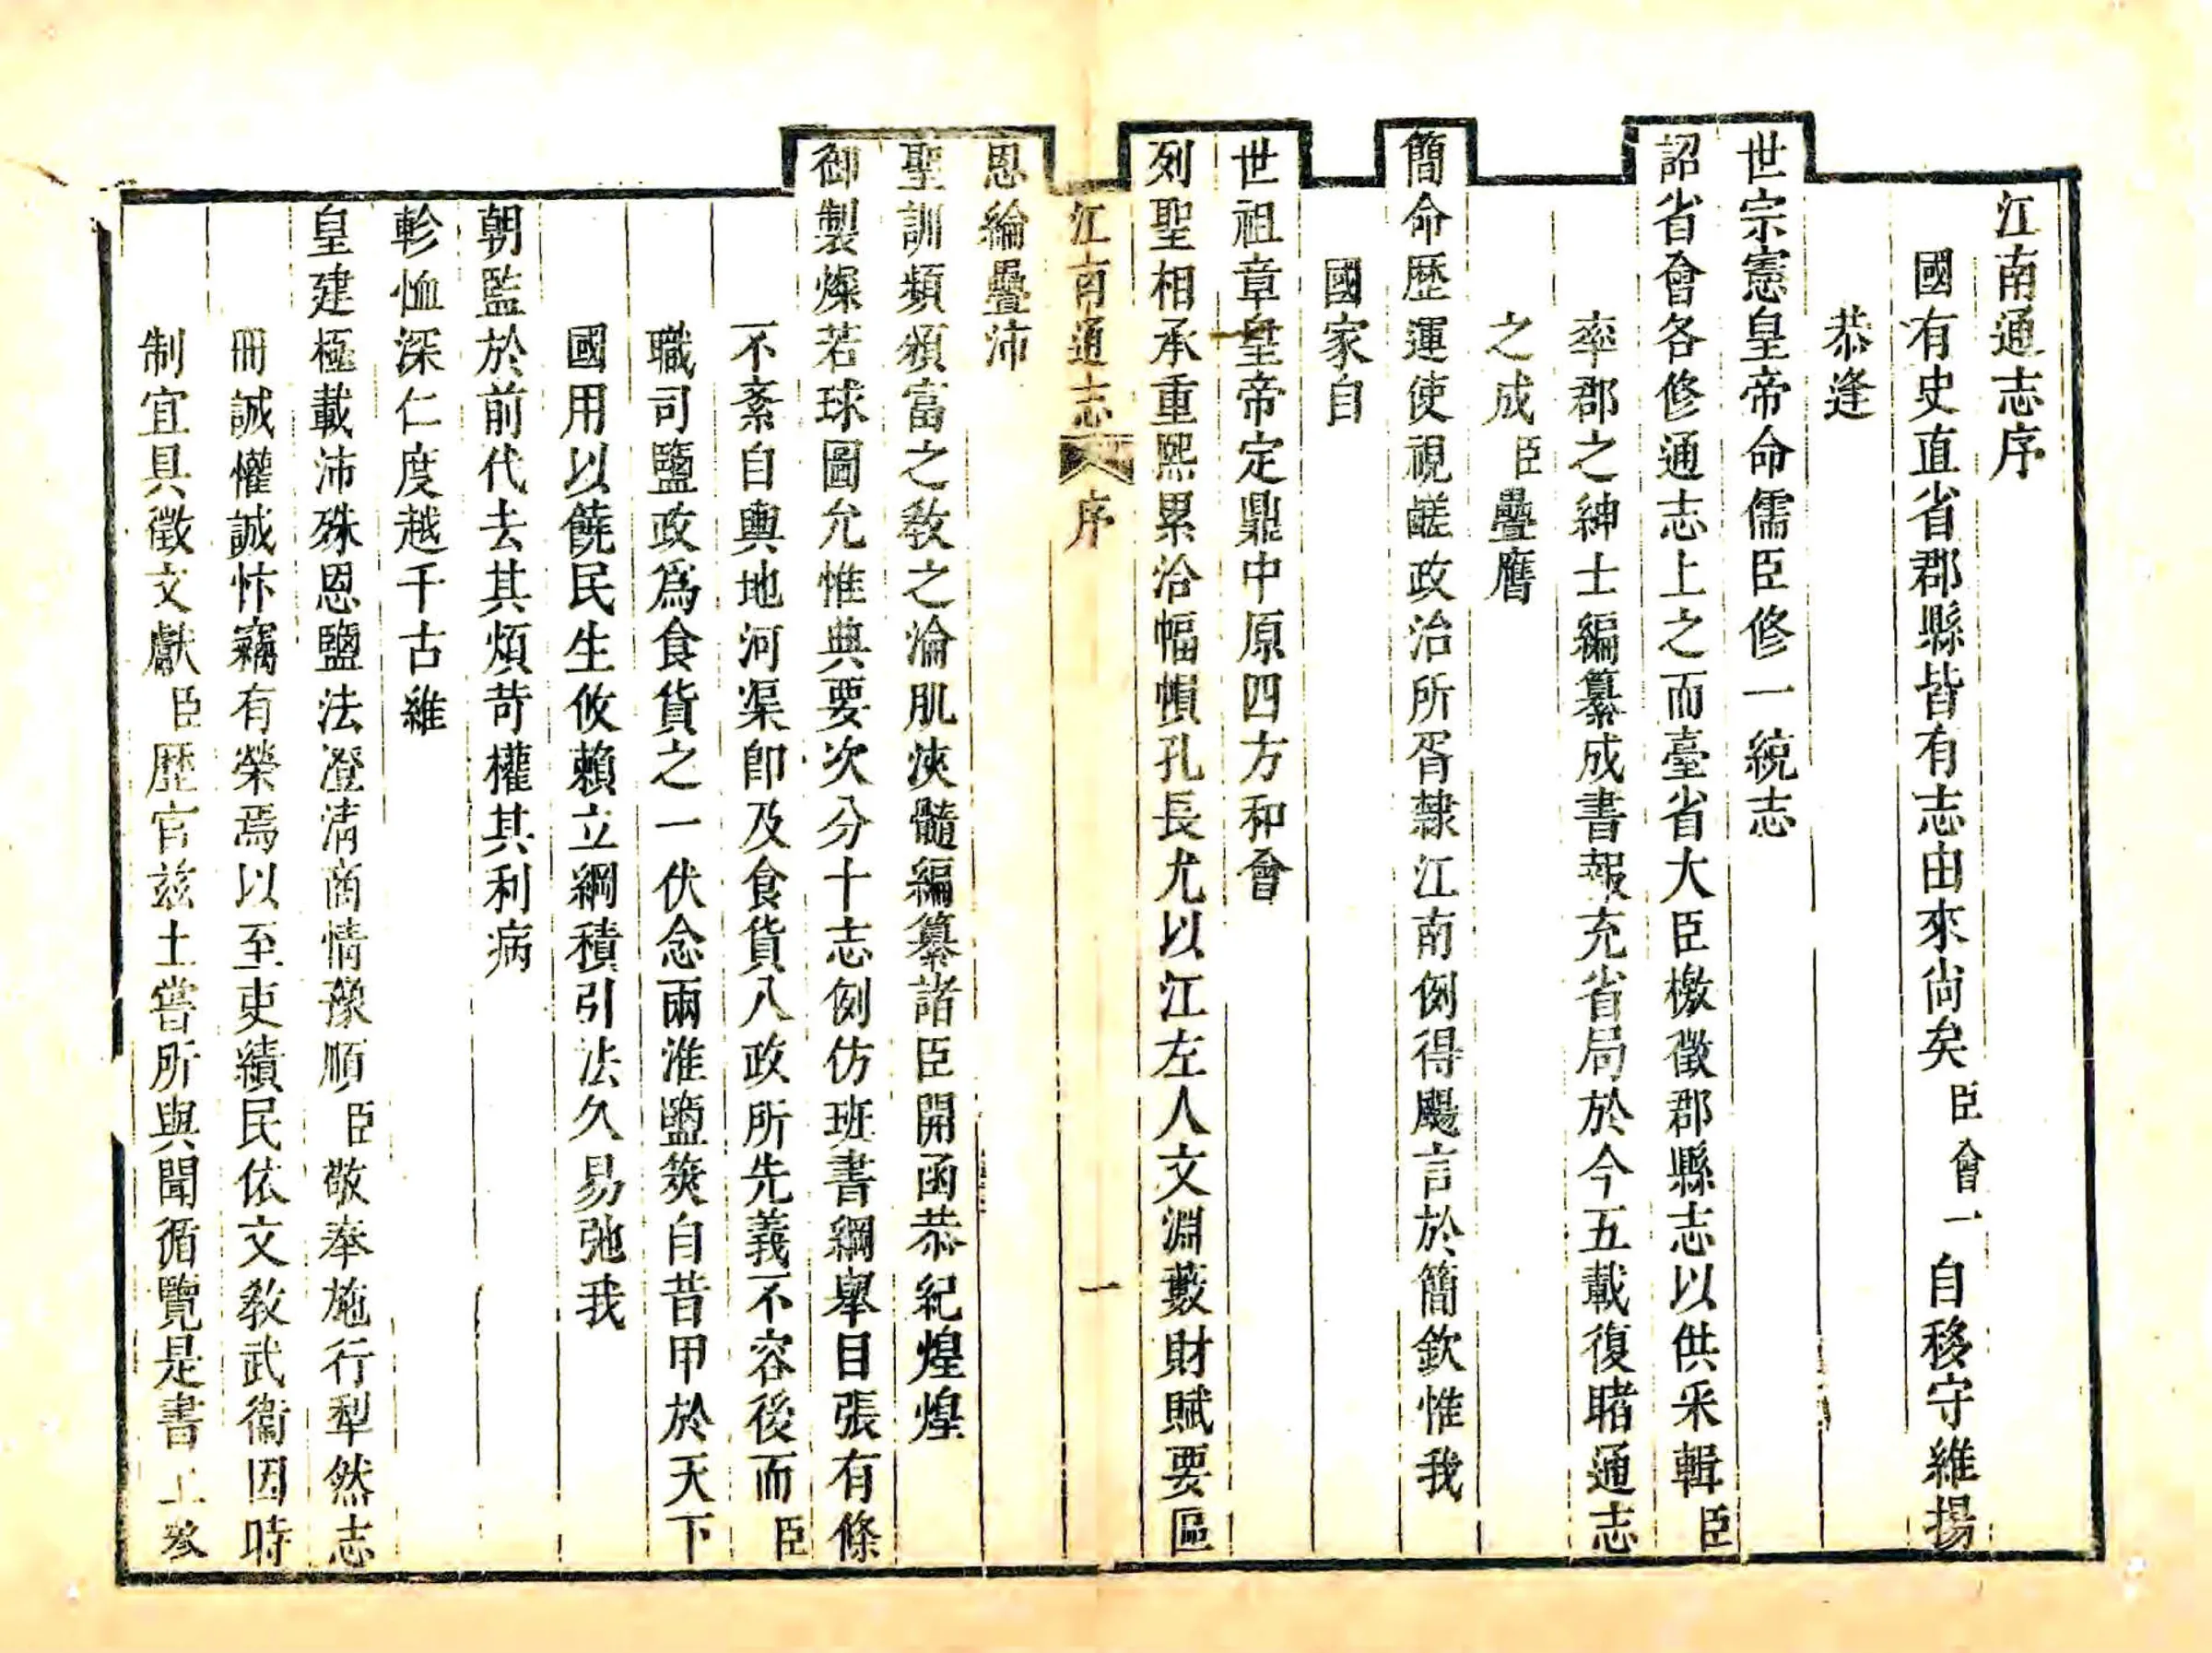 江南通志序
國有史直省郡縣皆有志由來尚矣臣會一自移守維揚
恭逢
世宗憲皇帝命儒臣修一統志
詔省會各修通志上之而臺省大臣檄徵郡縣志以供采輯臣
率郡之紳士編纂成書報充省局於今五載復睹通志
之成臣疊膺
簡命歷運使視鹾政治所胥隸江南例得颺言於簡欽惟我
國家自
世祖章皇帝定鼎中原四方和會
列聖相承重熙累洽幅幀孔長尤以江左人文淵藪財賦要區
江南通志 序 一
恩綸疊沛
聖訓頻頒富之敎之淪肌浹髓編纂諸臣開函恭紀煌煌
御製燦若球圖允惟典要次分十志例仿班書綱舉目張有條
不紊自輿地河渠卽及食貨八政所先義不容後而臣
職司鹽政爲食貨之一伏念兩淮鹽筴自昔甲於天下
國用以饒民生攸賴立綱積引法久易弛我
朝監於前代去其煩苛權其利病
軫恤深仁度越千古維
皇建極載沛殊恩鹽法澄淸商情豫順臣敬奉施行犁然志
冊誠懽誠忭竊有榮焉以至吏績民依文敎武衞因時
制宜具徵文獻臣歷官茲土嘗所與聞循覽是書上參